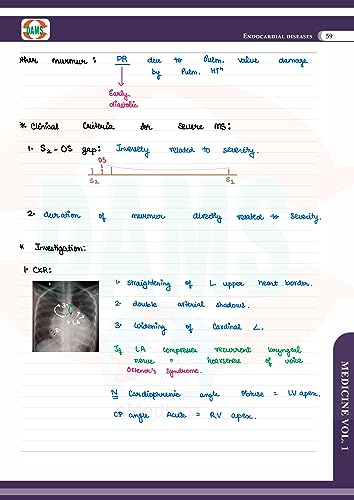 DAMS
ENDOCARDIAL DISEASES 59
other murmur : PR due to Pulm. valve damage
by Pulm. HTⁿ
Early
diastolic
* Clinical Criteria for Severe MS:
1. S₂-OS gap: Inversely related to severity.
OS
S₂ S₁
2. duration of murmur directly related to Severity.
* Investigation:
1. CXR:
1. straightening of L upper heart border.
2. double arterial shadows.
3. Widening of Carinal ∠.
If LA compresses recurrent laryngeal
nerve = hoarseness of voice
Ortner's Syndrome.
N Cardiophrenic angle Obtuse = LV apex.
CP angle Acute = RV apex.
3
LA
MEDICINE VOL. 1